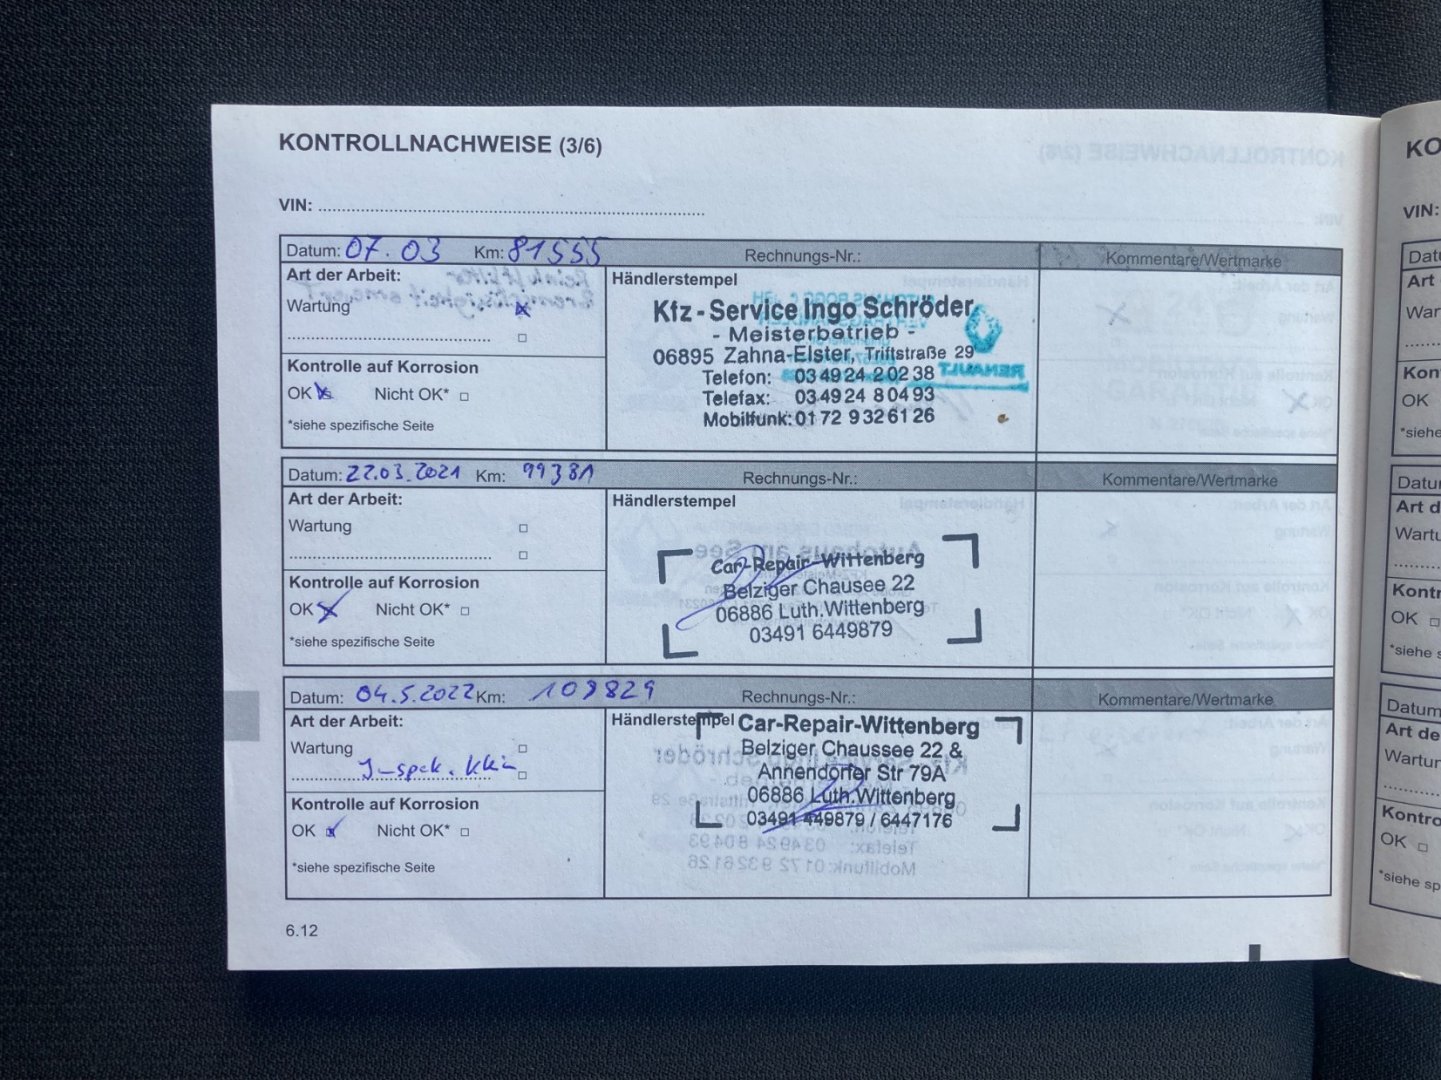 KONTROLLNACHWEISE (3/6)
VIN:
Datum: 07.03 Km: 81555 Rechnungs-Nr.: Kommentare/Wertmarke
Art der Arbeit:
Wartung
Kontrolle auf Korrosion
OK Nicht OK*
*siehe spezifische Seite
Händlerstempel
Kfz-Service Ingo Schröder
- Meisterbetrieb -
06895 Zahna-Elster, Triftstraße 29
Telefon: 034924 20238
Telefax: 034924 80493
Mobilfunk: 0172 9326126
RENAULT
Datum: 22.03.2021 Km: 99381 Rechnungs-Nr.: Kommentare/Wertmarke
Art der Arbeit:
Wartung
Kontrolle auf Korrosion
OK Nicht OK*
*siehe spezifische Seite
Händlerstempel
Car-Repair-Wittenberg
Belziger Chausee 22
06886 Luth.Wittenberg
03491 6449879
Datum: 04.5.2022 Km: 109829 Rechnungs-Nr.: Kommentare/Wertmarke
Art der Arbeit:
Wartung
Kontrolle auf Korrosion
OK Nicht OK*
*siehe spezifische Seite
Händlerstempel
Car-Repair-Wittenberg
Belziger Chaussee 22 &
Annendorfer Str 79A
06886 Luth.Wittenberg
03491 449879 / 6447176
6.12
KO
VIN:
Datu
Art
War
Kon
OK
*siehe
Datu
Art d
Wartu
Kontr
OK
*siehe s
Datum
Art de
Wartur
Kontro
OK
*siehe sp